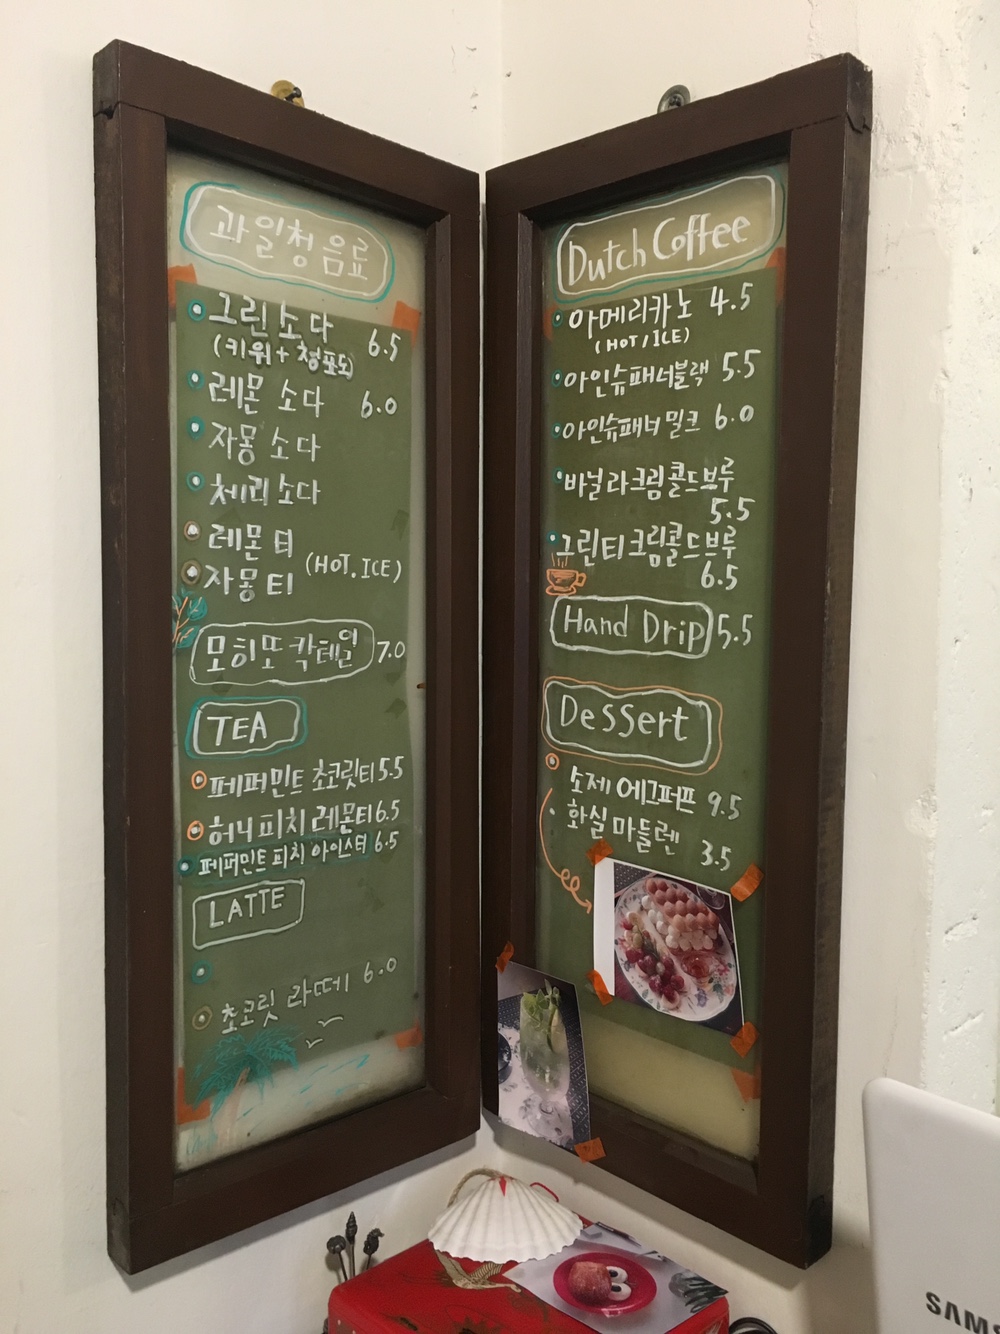 과일청음료
그린소다 6.5
(키위+청포도)
레몬 소다 6.0
자몽 소다
체리소다
레몬 티
자몽티 (HOT.ICE)
모히또칵테일 7.0
TEA
페퍼민트 초코릿티 5.5
허니피치레몬티 6.5
페퍼민트피치 아이스티 6.5
LATTE
초코릿 라떼 6.0
Dutch Coffee
아메리카노 4.5
(HOT/ICE)
아인슈패너블랙 5.5
아인슈패너 밀크 6.0
바닐라크림콜드브루
5.5
그린티크림콜드브루
6.5
Hand Drip 5.5
Dessert
소제 에그퍼프 9.5
화실 마들렌 3.5